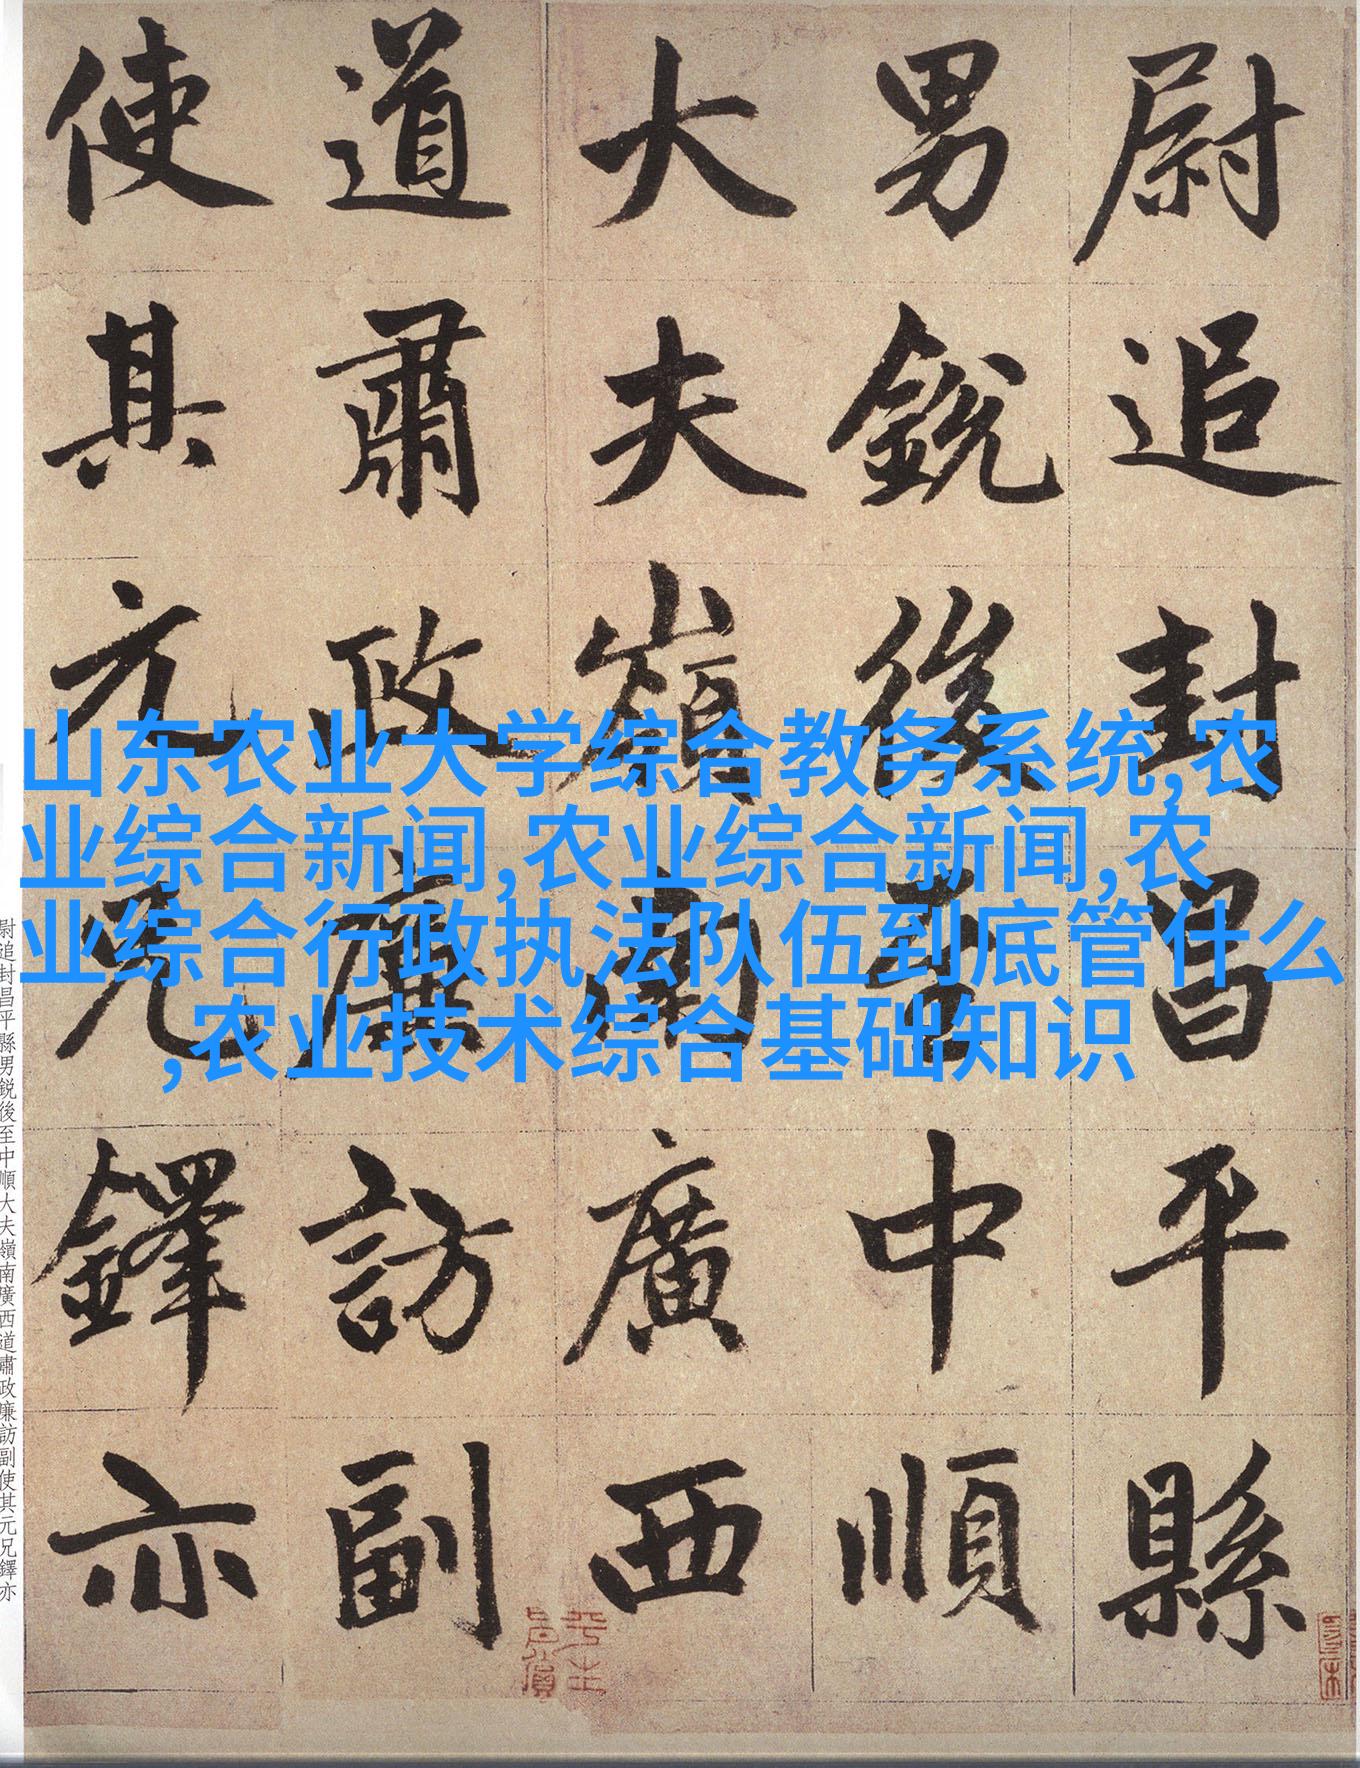 尉追封昌平縣
男鋭後至中順
大夫嶺南廣西
道肅政廉訪副
使其元兄鐸亦
山东农业大学综合教务系统,农
业综合新闻,农业综合新闻,农
业综合行政执法队伍到底管什么
,农业技术综合基础知识
尉追封昌平縣男鋭後至中順大夫嶺南廣西道肅政廉訪副使其元兄鐸亦